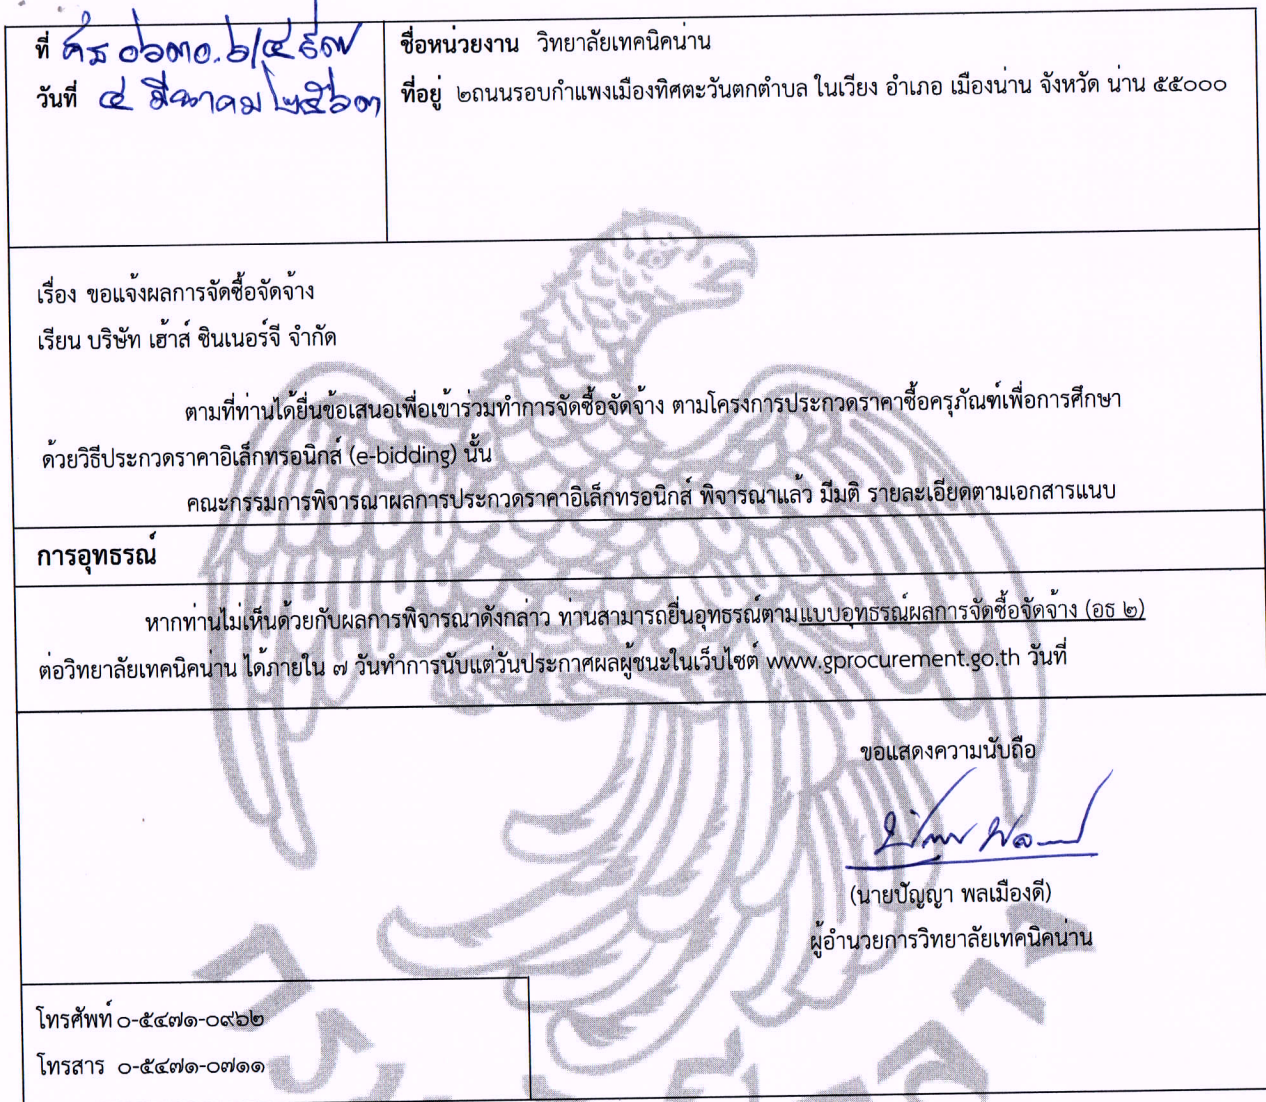 ที่ ศธ ๐๖๓๐.๖/๔๕๗
วันที่ ๔ มีนาคม ๒๕๖๓
ชื่อหน่วยงาน วิทยาลัยเทคนิคน่าน
ที่อยู่ ๒ถนนรอบกำแพงเมืองทิศตะวันตกตำบล ในเวียง อำเภอ เมืองน่าน จังหวัด น่าน ๕๕๐๐๐
เรื่อง ขอแจ้งผลการจัดซื้อจัดจ้าง
เรียน บริษัท เฮ้าส์ ซินเนอร์จี จำกัด
ตามที่ท่านได้ยื่นข้อเสนอเพื่อเข้าร่วมทำการจัดซื้อจัดจ้าง ตามโครงการประกวดราคาซื้อครุภัณฑ์เพื่อการศึกษา
ด้วยวิธีประกวดราคาอิเล็กทรอนิกส์ (e-bidding) นั้น
คณะกรรมการพิจารณาผลการประกวดราคาอิเล็กทรอนิกส์ พิจารณาแล้ว มีมติ รายละเอียดตามเอกสารแนบ
การอุทธรณ์
หากท่านไม่เห็นด้วยกับผลการพิจารณาดังกล่าว ท่านสามารถยื่นอุทธรณ์ตามแบบอุทธรณ์ผลการจัดซื้อจัดจ้าง (อธ ๒)
ต่อวิทยาลัยเทคนิคน่าน ได้ภายใน ๗ วันทำการนับแต่วันประกาศผลผู้ชนะในเว็บไซต์ www.gprocurement.go.th วันที่
ขอแสดงความนับถือ
(นายปัญญา พลเมืองดี)
ผู้อำนวยการวิทยาลัยเทคนิคน่าน
โทรศัพท์ ๐-๕๔๗๑-๐๙๖๒
โทรสาร ๐-๕๔๗๑-๐๗๑๑